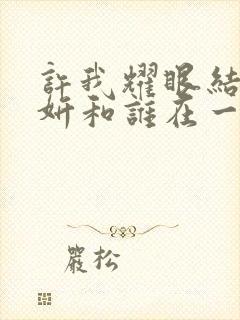 許我耀眼結
妍和誰在一
嚴松